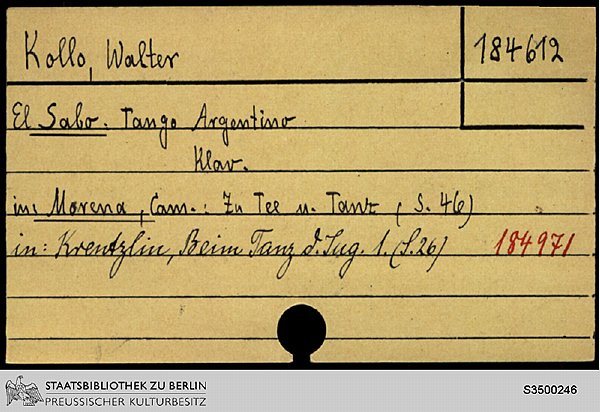 Kollo, Walter 184612
El Sabo. Tango Argentino
Klav.
in: Morena, Cam.: Zu Tee u. Tanz (S. 46)
in: Krentzlin, Beim Tanz d. Jug. 1. (S. 26) 184971
STAATSBIBLIOTHEK ZU BERLIN
PREUSSISCHER KULTURBESITZ
S3500246